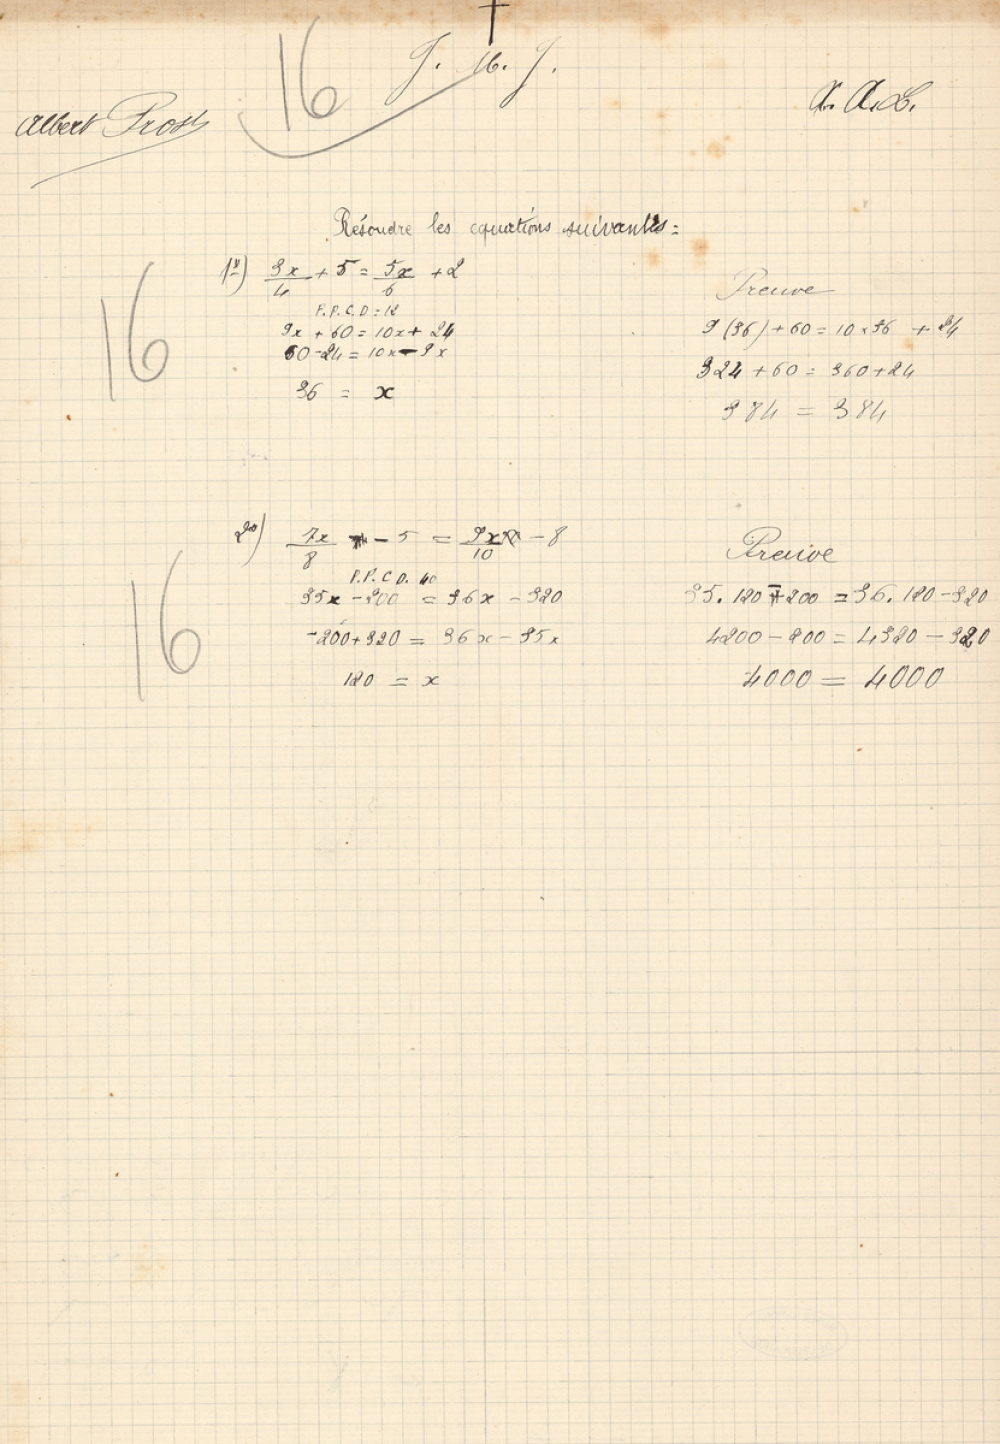 16
J. M. J.
A. A. L.
Albert Prost
Résoudre les equations suivantes :
1º) 3x/4 + 5 = 5x/6 + 2
P.P.C.D = 12
9x + 60 = 10x + 24
60 - 24 = 10x - 9x
36 = x
16
Preuve
9 (36) + 60 = 10 x 36 + 24
324 + 60 = 360 + 24
384 = 384
2º) 7x/8 - 5 = 9x/10 - 8
P.P.C.D. 40
35x - 200 = 36x - 320
-200 + 320 = 36x - 35x
120 = x
16
Preuve
35. 120 - 200 = 36. 120 - 320
4200 - 200 = 4320 - 320
4000 = 4000